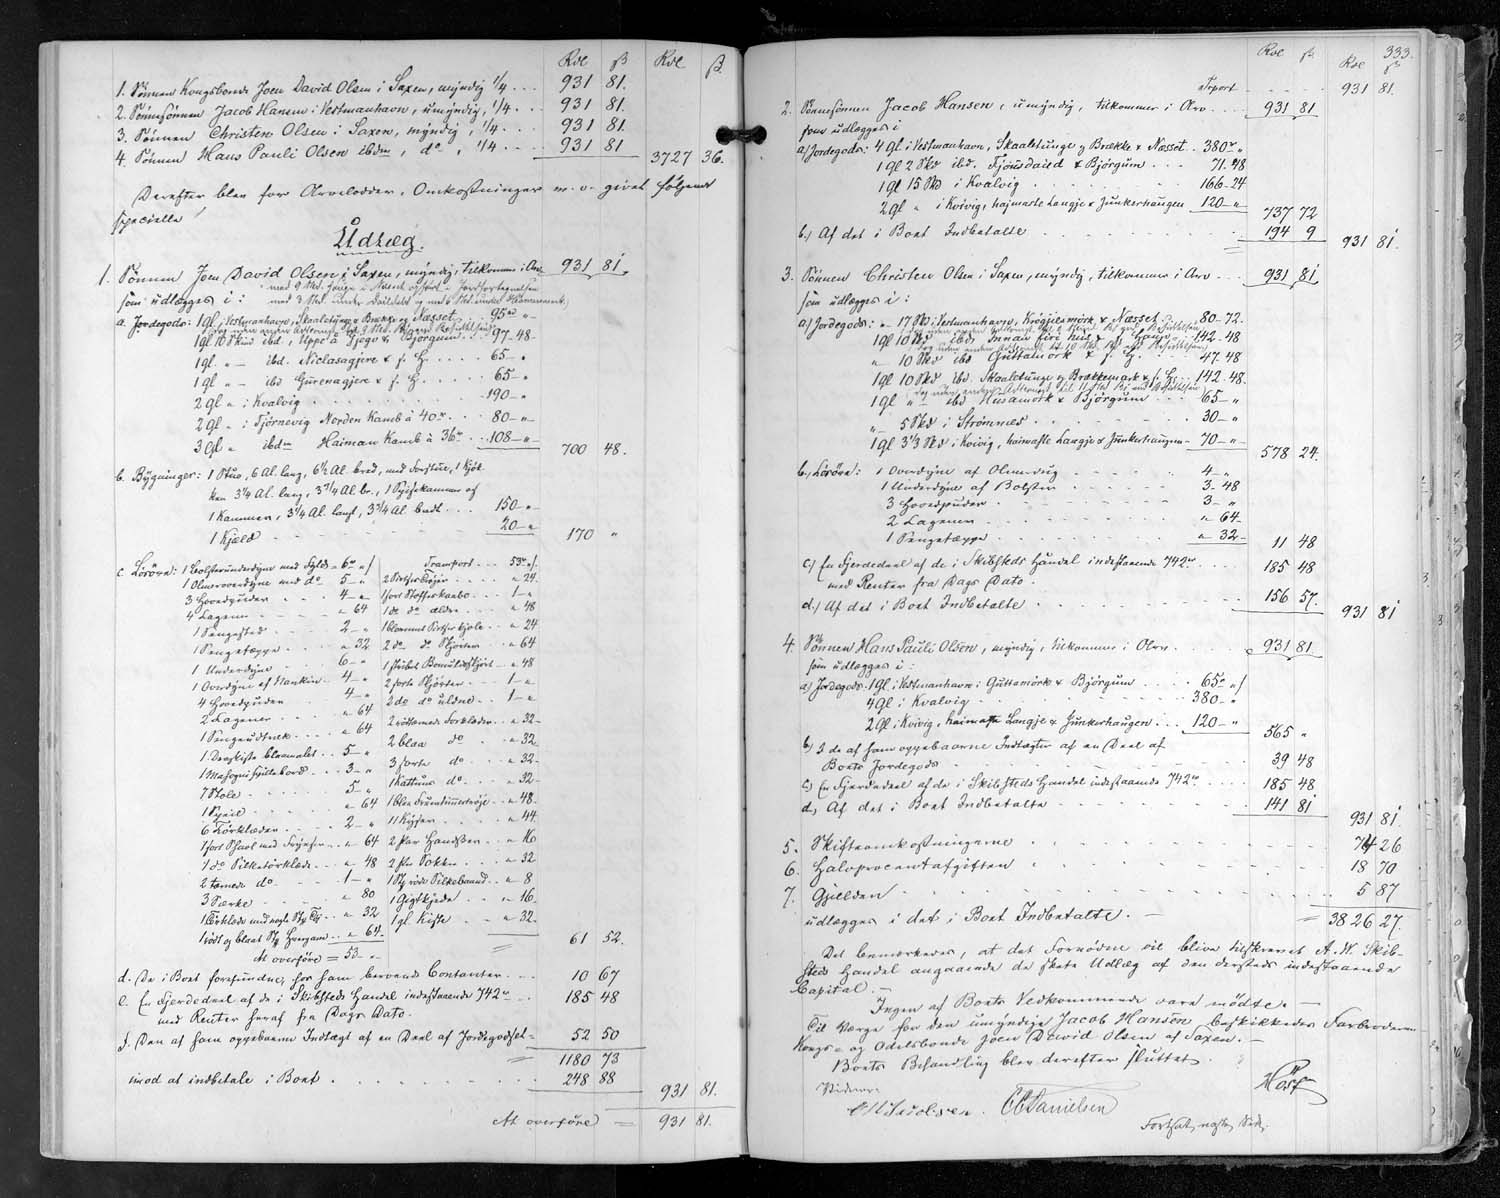 Rdl ß Rdl ß.
1. Sønnen Kongsbonde Joen David Olsen i Saxen, myndig 1/4 . . . 931 81.
2. Sønnesönnen Jacob Hansen i Vestmanhavn, umyndig, 1/4 . . . 931 81.
3. Sönnen Christen Olsen i Saxen, myndig, 1/4 . . . 931 81.
4. Sönnen Hans Pauli Olsen ibdm, do, 1/4 . . . 931 81 3727 36.
Derefter blev for Arvelodder, Omkostninger m. v. givet følgende
specielle
Udlæg.
1. Sönnen Joen David Olsen i Saxen, myndig, tilkommer i Arv 931 81.
som udlægges i:
a. Jordegods: 1 gl i Vestmanhavn, Skaaletunge Brække og Næsset . . 95 "
1 gl 10 Skind ibd, Uppe á Gjogv & Bjørgum . . 97-48
1 gl. " ibd. Niclasagjere & f. H. . . . 65- "
1 gl " ibd Gurenagjere & f. H. . . . . 65- "
2 gl " i Kvalvig . . . . 190- "
2 gl " i Tjørnevig Norden Kamb à 40 . . . 80- "
3 gl " ibdm Haiman Kamb à 36 . . 108- " 700 48.
b. Bygninger: 1 Stue, 6 Al. lang, 6 1/2 Al. bred, med Forstue, 1 Kjök-
ken 3 1/4 Al. lang, 3 3/4 Al br., 1 Spisekammer og
1 Kammer, 3 1/4 Al. langt, 3 3/4 Al bredt . . . 150- "
1 Kjæld . . . . . 20- " 170 "
c. Lösöre: 1 Bolsterunderdyne med Fyld 6 " Transport . . . 53 "
1 Olmeroverdyne med do . 5 - " 2 . . . " 24
3 Hovedpuder . . . 4 - " 1 sort . . 1 - "
4 Lagener . . . " 64 1 do do ældre . . " 48
1 Sengested . . . 2 - " 1 . . " 24
1 Sengetæppe . . . " 32 2 do do Skjörter . . " 64
1 Underdyne . . . 6 - " 1 stribet Bomuldsskjört . . " 48
1 Overdyne af Nankin . . 4 - " 2 sorte Skjörter . . . 1 - "
4 Hovedpuder 4 - " 2 do do uldne . . . 1 - "
2 Lagener . . . " 64 2 Forklæder . . " 32
1 . . . " 64 2 blaa do . . " 32
1 Dragkiste blaamalet . . 5 - " 3 sorte do . . " 32
1 Mahogni Spillebord . . . 3 - " 1 Kattuns do . . " 32
7 Stole . . . 5 - " 1 blaa Fruentimmertröje . . " 48
1 Speil . . . " 64 11 Luer . . " 44
6 Törklæder . . . 2 - " 2 Par Handsker . . " 16
1 sort Schavl med Frynser . . " 64 2 Par Sokker . . . " 32
1 do Silketörklæde . . . " 48 1 St röde Silkebaand . . " 8
2 do . . . 1 - " 1 Gigtkjæde . . " 16
3 Særke . . . " 80 1 gl. Kiste . . " 32
1 Törklæde med nogle St. Töi . . " 32
1 rödt og blaat St Hvergarn . . " 64 61 52.
At overføre = 53 - "
d. De i Boet forefundne, hos ham beroende Contanter . . . 10 67
e. En Fjerdedeel af de i Skibsteds Handel indestaaende 742 . . 185 48
med Renter heraf fra Dags Dato.
f. Den af ham oppebaarne Indtægt af en Deel af Jordegodset - 52 50
1180 73
imod at indbetale i Boet . . . . . 248 88 931 81.
At overføre = 931 81.
333.
Rdl ß Rdl ß
Trsport . . . . 931 81.
2. Sønnesönnen Jacob Hansen, umyndig, tilkommer i Arv . . . 931 81
som udlægges i
a) Jordegods: 4 gl. i Vestmanhavn, Skaaletunge og Brække & Næsset . 380 "
1 gl 2 Skd ibd. Tjönsdaild & Björgum . . . 71. 48
1 gl 15 Skd i Kvalvig . . . . 166-24
2 gl " i Kvivig, hajmaste Langje & Junkerhaugen 120- " 737 72
b.) Af det i Boet Indbetalte . . . . 194 9 931 81.
3. Sönnen Christen Olsen i Saxen, myndig, tilkommer i Arv . . . 931 81
som udlægges i:
a) Jordegods: " 17 Skd i Vestmanhavn, Krögjesmörk & Næsset . . 80-72.
1 gl 10 Skd ibd. Innan firi hus & Hanje . . 142-48
" 10 Skd ibd Guttamörk & f. H. . . . 47. 48
1 gl 10 Skd ibd. Skaaletunge og Brækkemark & f. H. . . 142-48.
1 gl " ibd Husamörk & Björgum . . . 65- "
" 5 Skd i Strömnæs . . . 30- "
1 gl 3 1/3 Skd i Kvivig, haimaste Langje & Junkerhaugen 70- " 578 24.
b.) Lösöre: 1 Overdyne af Olmerdug . . . 4- "
1 Underdyne af Bolster . . . 3-48
3 Hovedpuder . . . 3- "
2 Lagener . . . " 64-
1 Sengetæppe . . . " 32- 11 48
c.) En Fjerdedeel af de i Skibsteds Handel indestaaende 742 . . 185 48
med Renter fra Dags Dato.
d.) Af det i Boet Indbetalte . . . . 156 57. 931 81
4. Sönnen Hans Pauli Olsen, myndig, tilkommer i Arv . . . 931 81
som udlægges i:
a) Jordegods. 1 gl. i Vestmanhavn: Guttamörk & Björgum . . . 65 "
4 gl i Kvalvig . . . . 380- "
2 gl i Kvivig, haimaste Langje & Junkerhaugen . . 120- " 565 "
b) I de af ham oppebaarne Indtægter af en Deel af
Boets Jordegods . . . . 39 48
c) En Fjerdedeel af de i Skibsteds Handel indestaaende 742 . . 185 48
d. Af det i Boet Indbetalte . . . . 141 81
931 81.
5. Skifteomkostningerne . . . . 74 26
6. Halvprocentafgiften . . . . 18 70
7. Gjælden . . . . 5 87
udlægges i det i Boet Indbetalte. — 3826 27.
Det bemærkedes, at det Fornødne vil blive tilskrevet A. W. Skib-
steds Handel angaaende de skete Udlæg af den dersteds indestaaende
Capital. —
Ingen af Boets Vedkommende vare mødte. —
Til Værge for den umyndige Jacob Hansen beskikkedes Farbroderen
Kongs- og Odelsbonde Joen David Olsen af Saxen. —
Boets Behandling blev derefter sluttet.
Vidner:
Jacobsen. Danielsen
Fortsat næste Side.